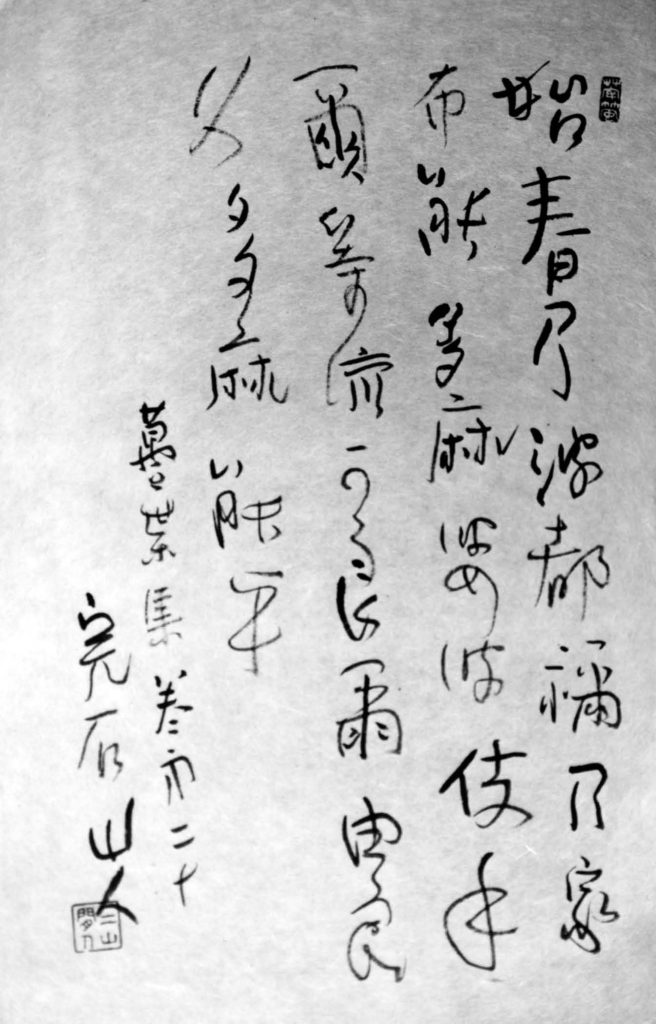 始春乃波都禰乃家
布能多麻婆波伎手
爾等流可良爾由良
久多麻能乎
萬葉集卷第二十
山人